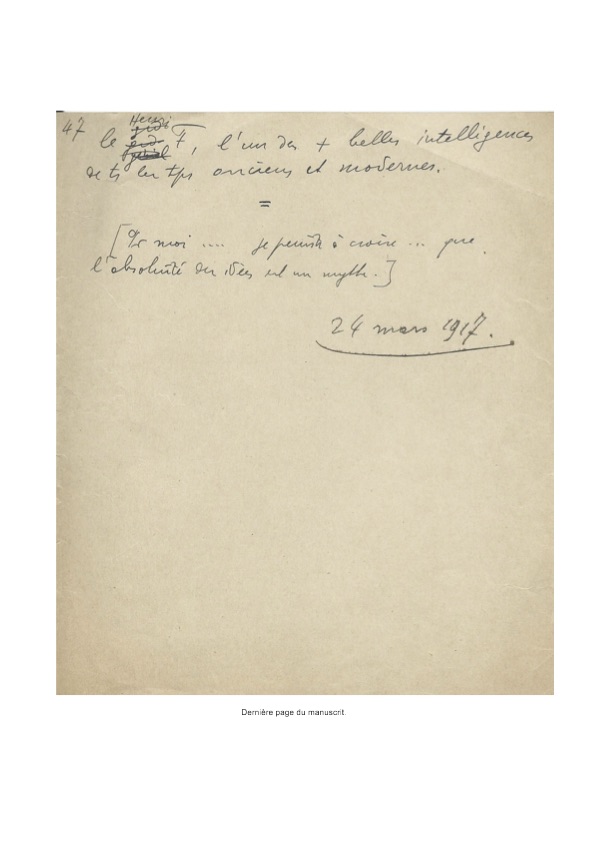 47
Henri
le F, l'un des + belles intelligences
de ts les tps anciens et modernes.
=
[Pr moi .... je persiste à croire ... que
l'absoluité des idées est un mythe.]
24 mars 1917.
Dernière page du manuscrit.